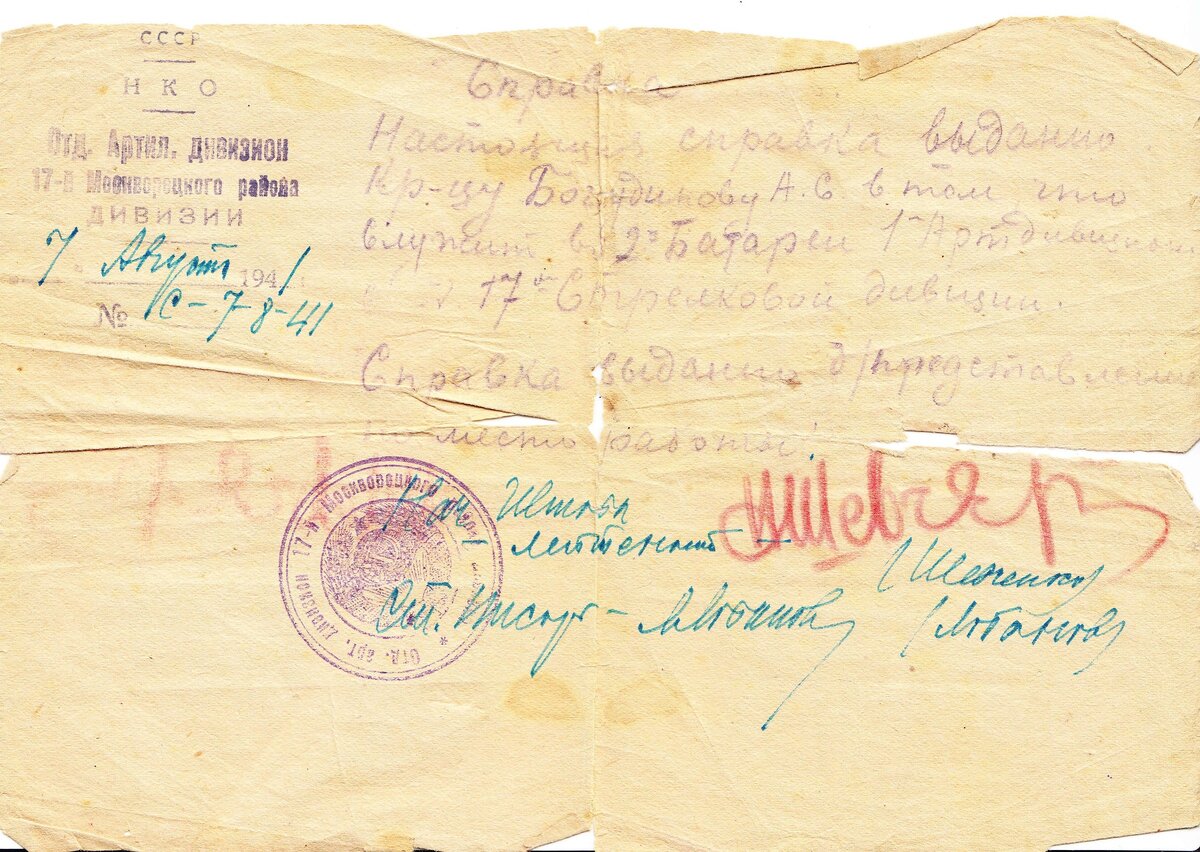 СССР
НКО
Отд. Артил. дивизион
17-й Москворецкого района
ДИВИЗИИ
7 Август 1941
№ С-7-8-41
Справка
Настоящая справка выдано
Кр-цу А.С в том что
служит в 2й Батареи 1 Артдивизиона
17й Стрелковой дивизии.
Справка выдано д/представления
по место работы.
Нач Штаба
лейтенант – (Шевченко)
Ст. Писарь – Лобанов (Лобанов)
Отд. арт. дивизион 17-й Москворецкого